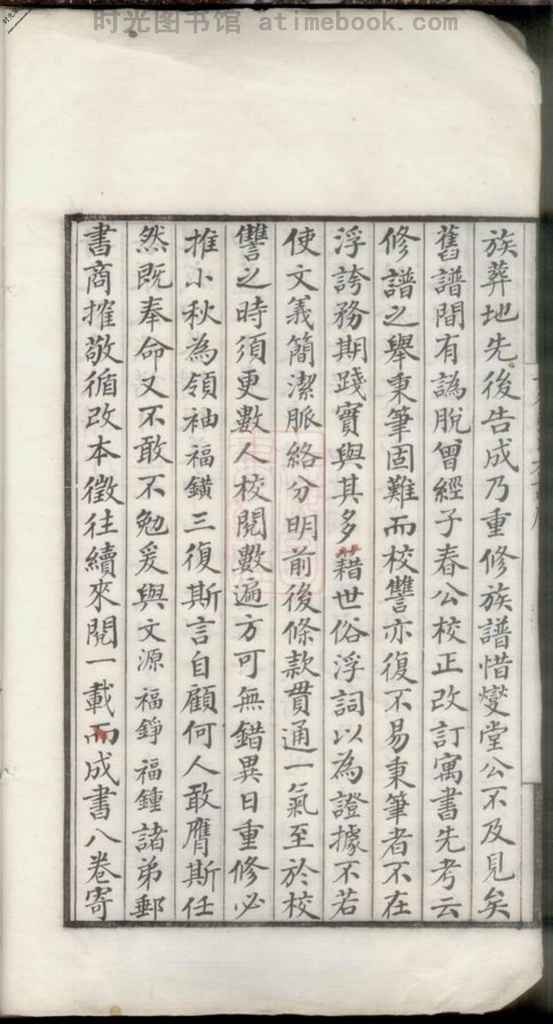 时光图书馆 - atimebook.com
族葬地先後告成乃重修族譜惜燮堂公不及見矣
舊譜間有譌脫曾經子春公校正改訂寓書先考云
修譜之舉秉筆固難而校讐亦復不易秉筆者不在
浮誇務期踐實與其多藉世俗浮詞以為證據不若
使文義簡潔脈絡分明前後條款貫通一氣至於校
讐之時須更數人校閱數遍方可無錯異日重修必
推小秋為領袖福鐄三復斯言自顧何人敢膺斯任
然既奉命又不敢不勉爰與文源福錚福鍾諸弟郵
書商搉敬循改本徵往續來閱一載而成書八卷寄